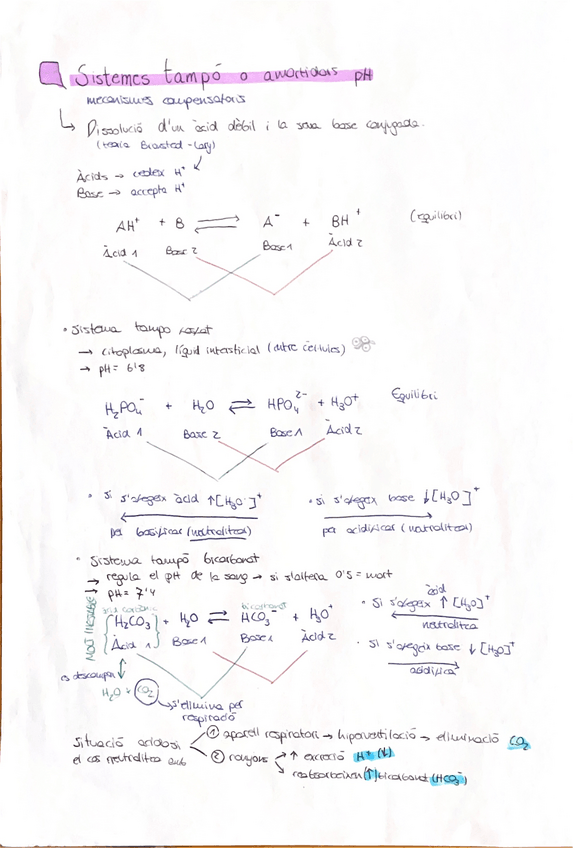 Sistemes tampó o amortidors pH
mecanismes compensatoris
↳ Dissolució d'un àcid dèbil i la seva base conjugada.
(teoria Brønsted-Lowry)
Àcids → cedeix H⁺
Base → accepta H⁺
AH⁺ + B ⇌ A⁻ + BH⁺ (equilibri)
Àcid 1 Base 2 Base 1 Àcid 2
• Sistema tampó fosfat
→ citoplasma, líquid intersticial (entre cèl·lules)
→ pH = 6'8
H₂PO₄⁻ + H₂O ⇌ HPO₄²⁻ + H₃O⁺ Equilibri
Àcid 1 Base 2 Base 1 Àcid 2
• si s'afegeix àcid ↑[H₃O]⁺
←
per basificar (neutralitza)
• si s'afegeix base ↓[H₃O]⁺
→
per acidificar (neutralitza)
• Sistema tampó bicarbonat
→ regula el pH de la sang → si s'altera 0'5 = mort
→ pH = 7'4
MOLT INESTABLE
àcid carbònic bicarbonat
H₂CO₃ + H₂O ⇌ HCO₃⁻ + H₃O⁺
Àcid 1 Base 1 Base 1 Àcid 2
es descompon ↕
H₂O + CO₂
→ s'elimina per
respiració
àcid
• Si s'afegeix ↑[H₃O]⁺
←
neutralitza
• Si s'afegeix base ↓[H₃O]⁺
→
acidifica
Situació acidosi
el cos neutralitza amb
① aparell respiratori → hiperventilació → eliminació CO₂
② ronyons → ↑ excreció H⁺ (↓)
→ reabsorbeixen (↑) bicarbonat (HCO₃⁻)